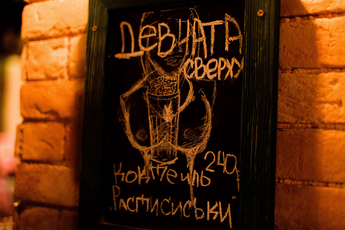 ДЕВЧАТА
СВЕРХУ
КОКТЕЙЛЬ 240
"РАСПИСИСЬКИ"